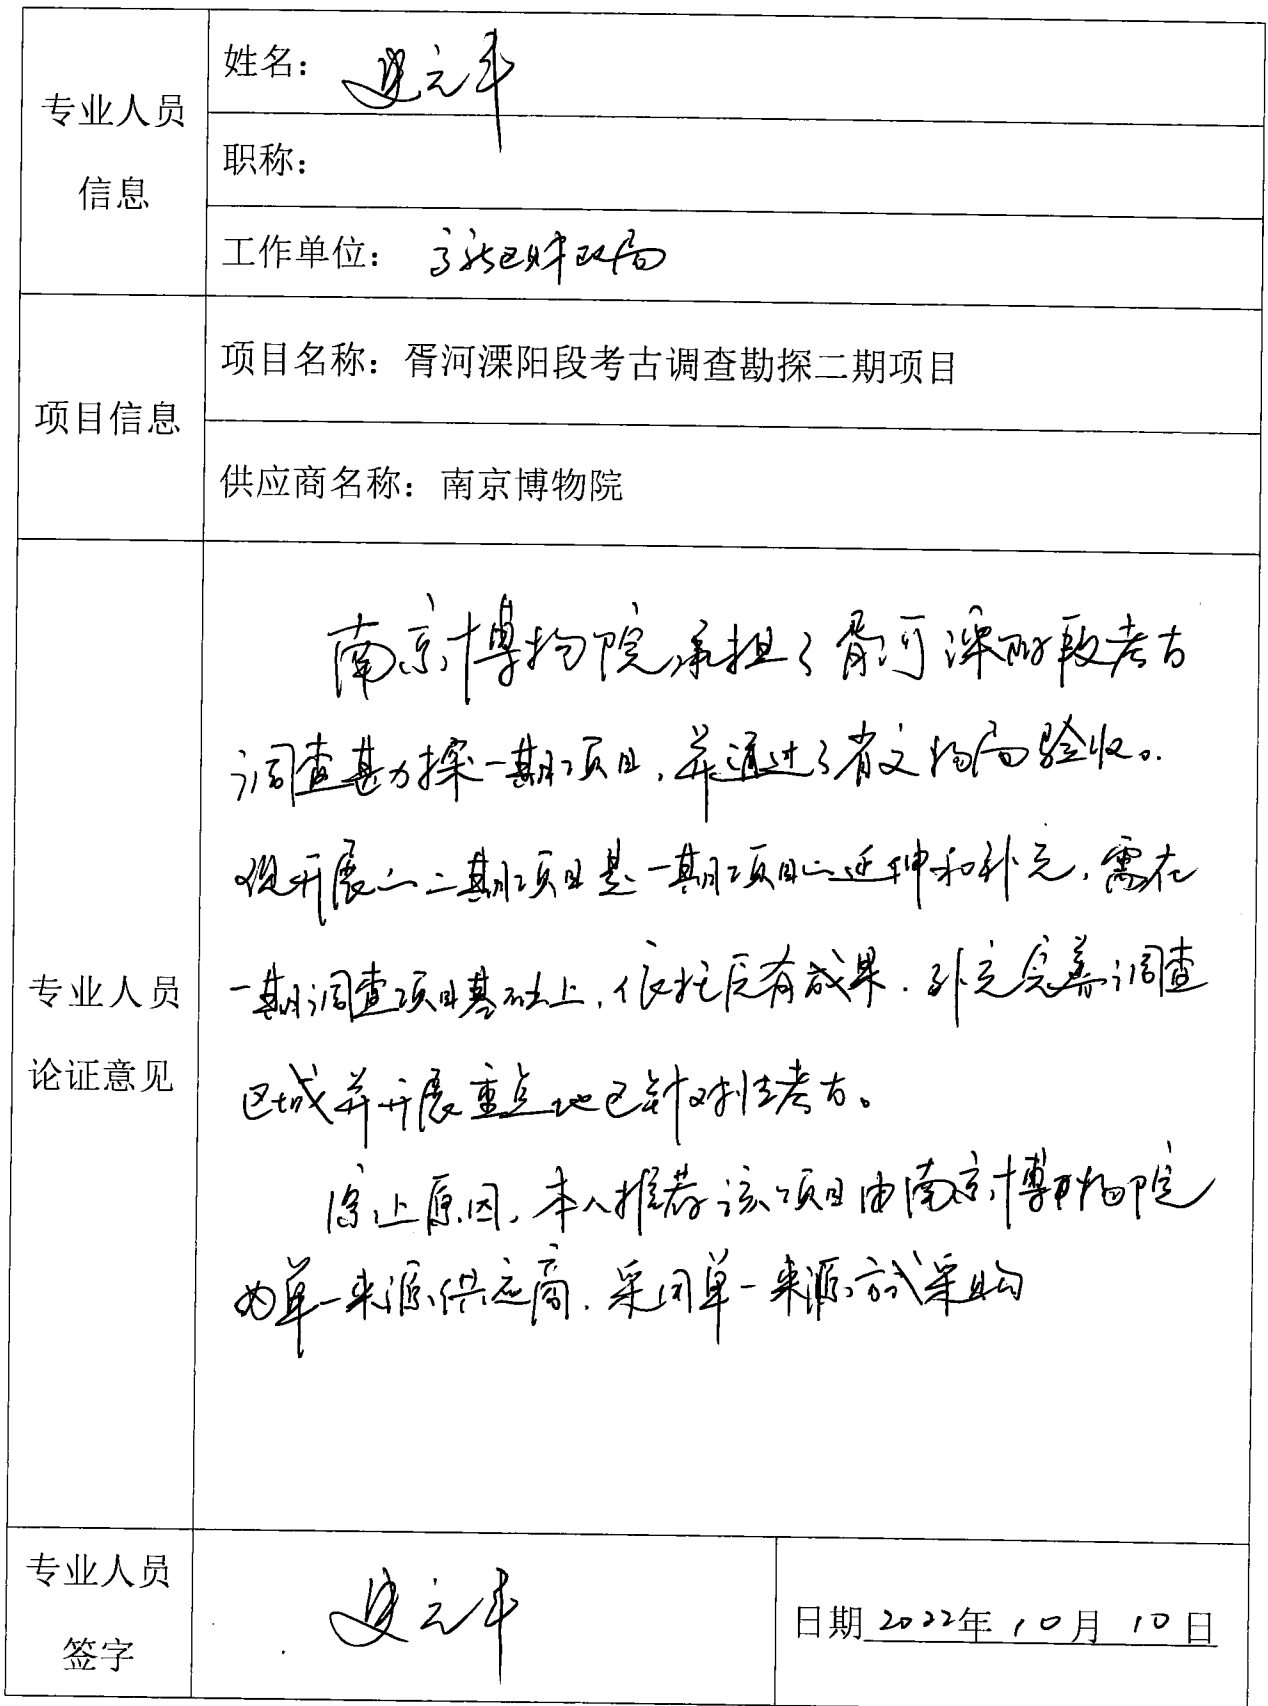 专业人员
信息
姓名：
职称：
工作单位：高新区财政局
项目信息
项目名称：胥河溧阳段考古调查勘探二期项目
供应商名称：南京博物院
专业人员
论证意见
南京博物院承担了胥河溧阳段考古
调查勘探一期项目，并通过了省文物局验收。
现开展的二期项目是一期项目的延伸和补充，需在
一期调查项目基础上，依托原有成果，补充完善调查
区域并开展重点地区针对性考古。
综上原因，本人推荐该项目由南京博物院
为单一来源供应商，采用单一来源方式采购
专业人员
签字
日期 2022年 10月 10日